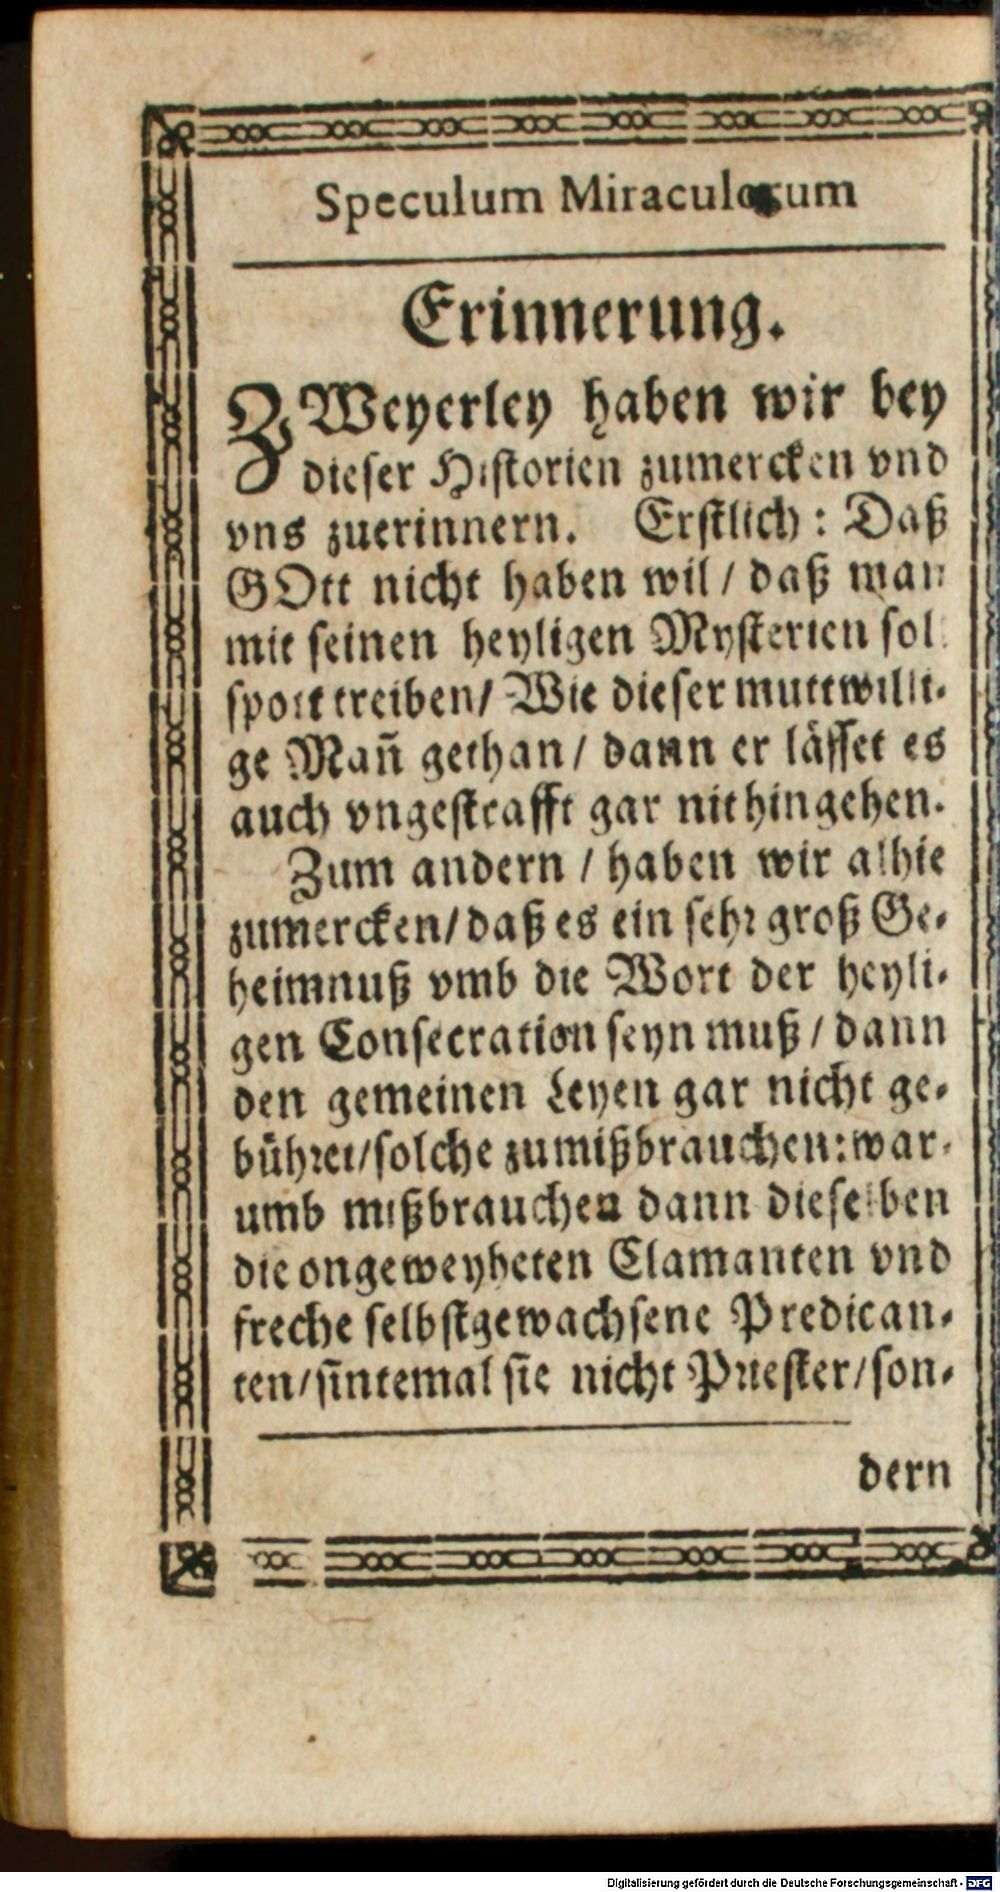 Speculum Miraculorum
Erinnerung.
ZWeyerley haben wir bey
dieser Historien zumercken vnd
vns zuerinnern. Erstlich: Daß
GOtt nicht haben wil/ daß man
mit seinen heyligen Mysterien sol
spott treiben/ Wie dieser muttwilli-
ge Mañ gethan/ dann er lässet es
auch vngestrafft gar nit hingehen.
Zum andern / haben wir alhie
zumercken/ daß es ein sehr groß Ge-
heimnuß vmb die Wort der heyli-
gen Consecration seyn muß / dann
den gemeinen Leyen gar nicht ge-
bühret/ solche zumißbrauchen: war-
umb mißbrauchen dann dieselben
die ongeweyheten Clamanten vnd
freche selbstgewachsene Predican-
ten/ sintemal sie nicht Priester/ son-
dern
Digitalisierung gefördert durch die Deutsche Forschungsgemeinschaft - DFG